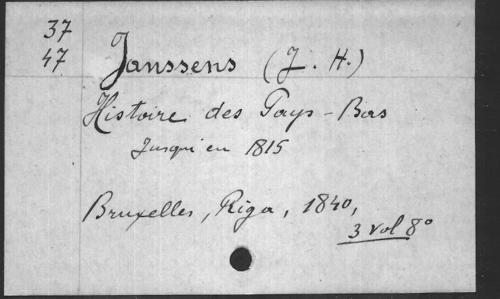 37
47
Janssens (J. H.)
Histoire des Pays-Bas
Jusqu'en 1815
Bruxelles, Riga, 1840,
3 vol 8°